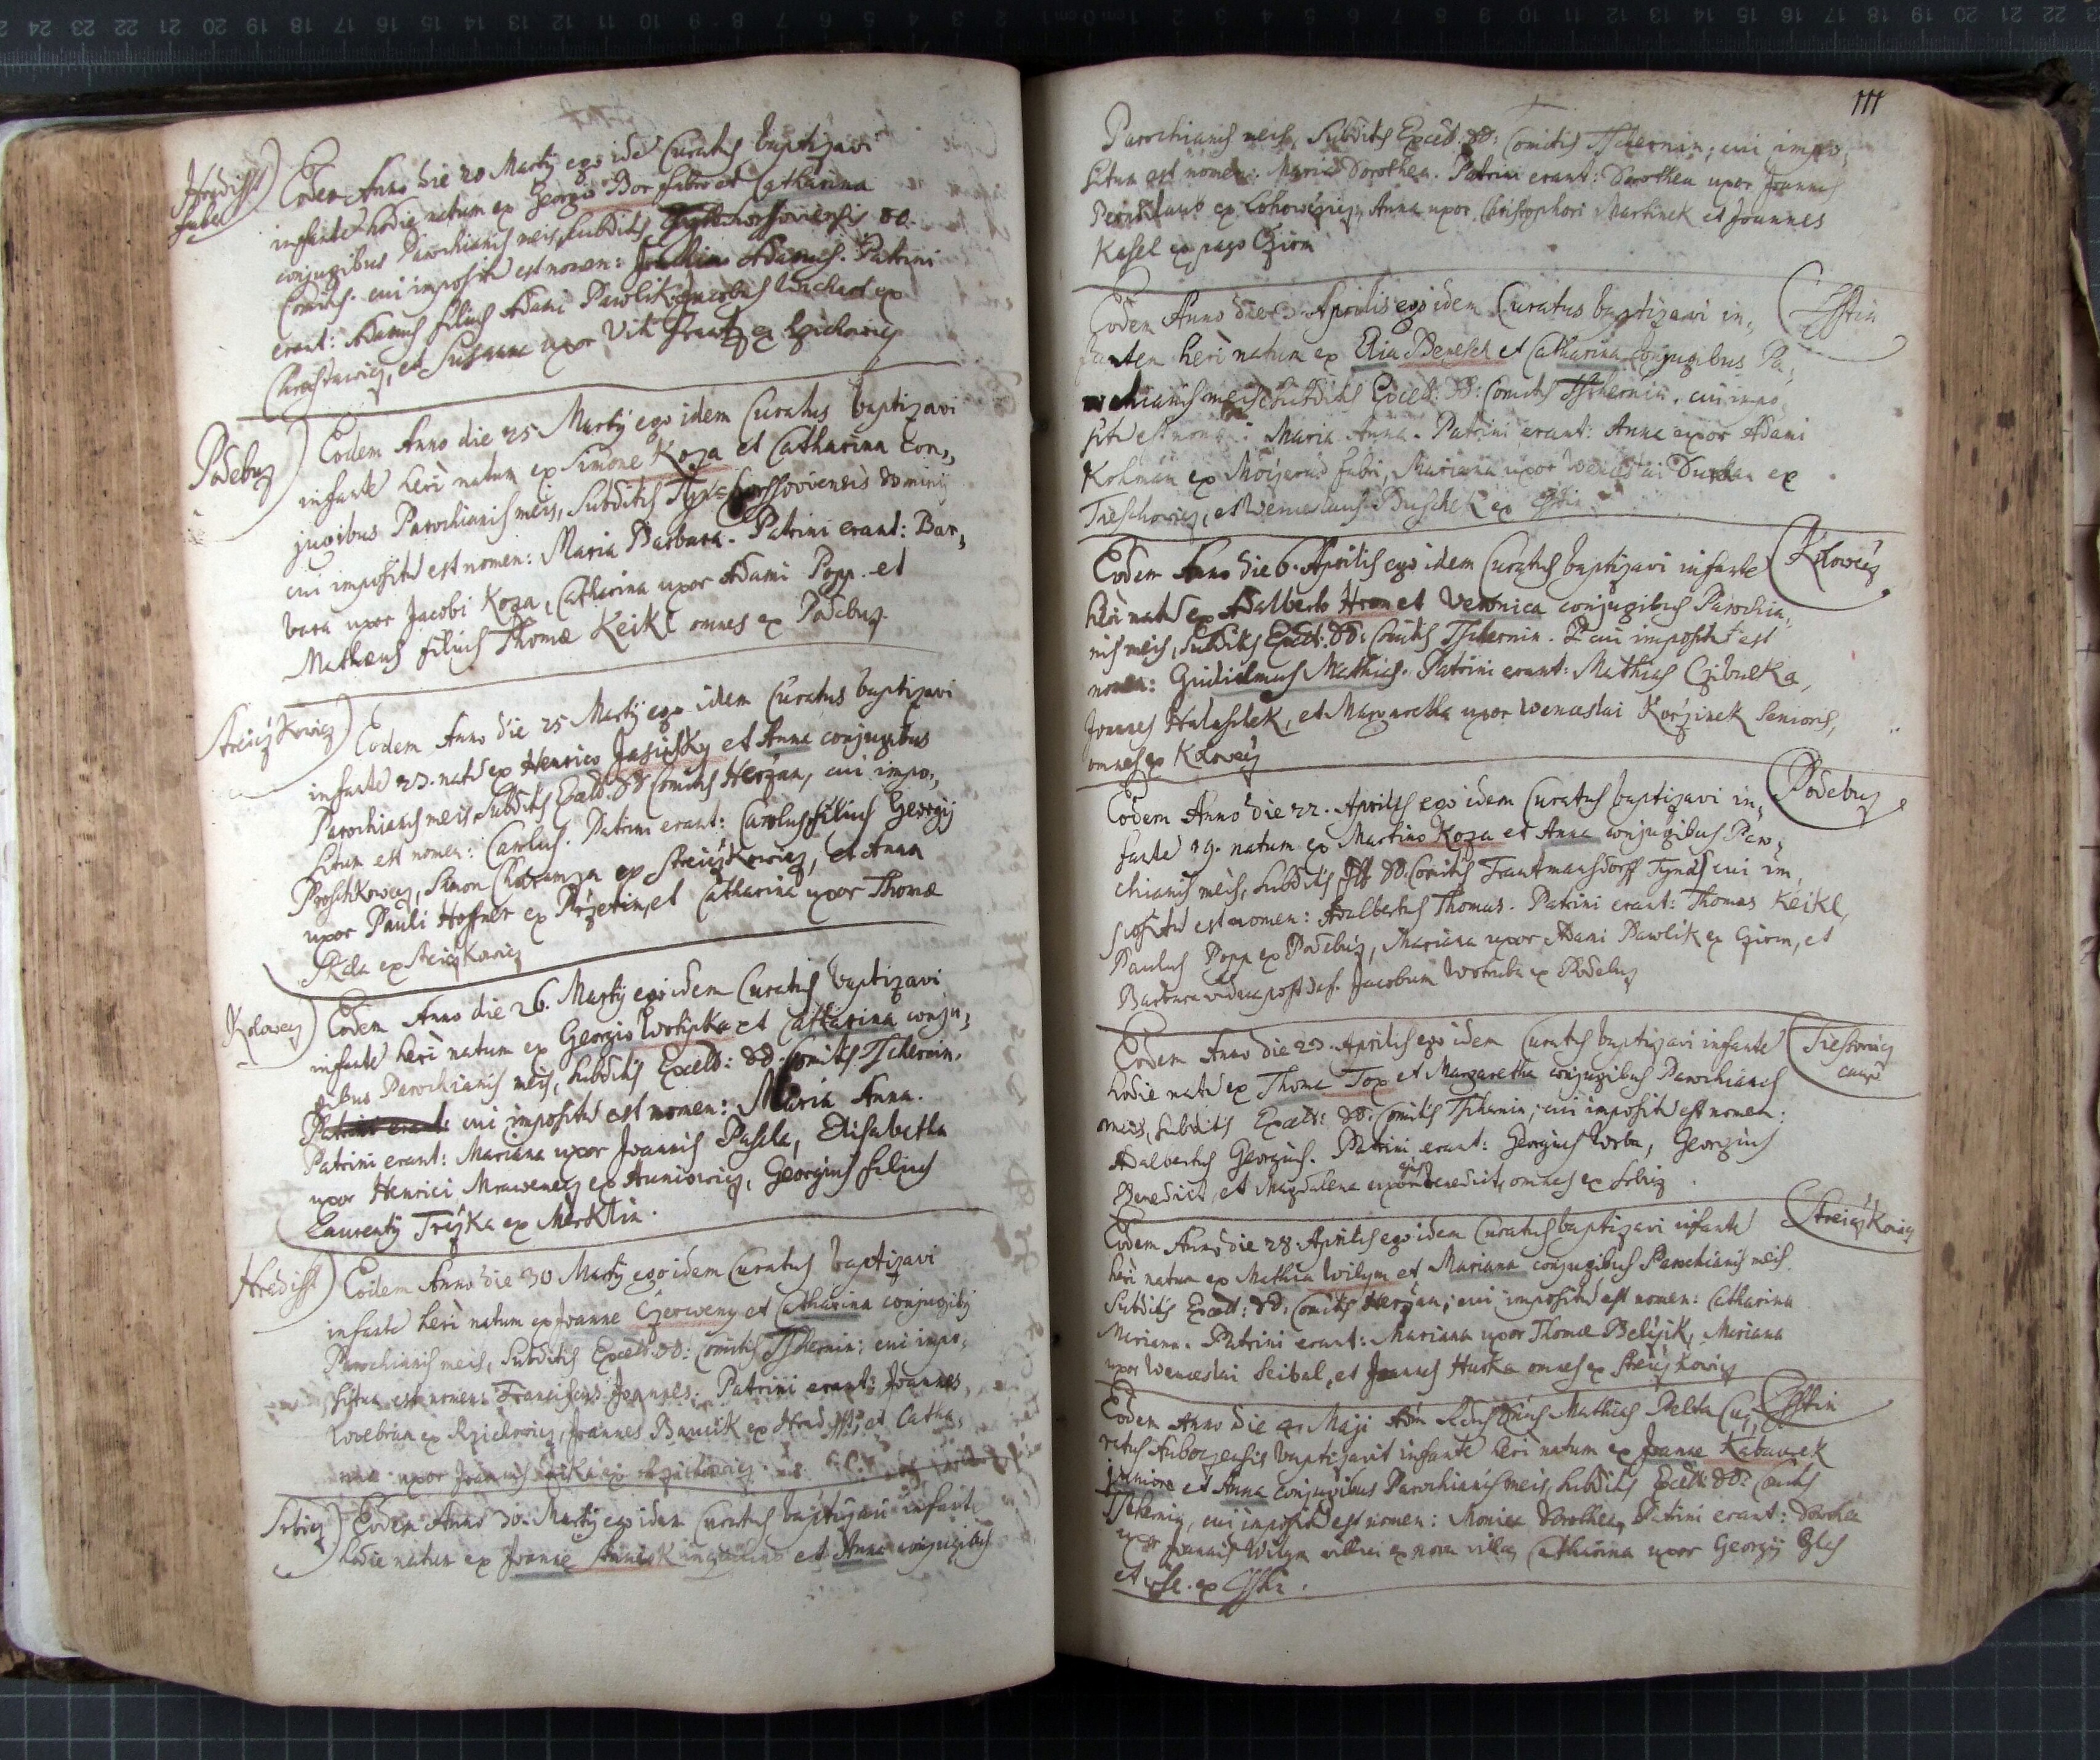 Hradisst
faber
Eodem Anno die 20 Martÿ ego idē Curatus baptizavi
infantē hodie natum ex Georgio Bor fabro et Catharina
conjugibus Parochianis meis, Subditis DD.
Comitis. cui impositū est nomen: Joachimus Adamus. Patrini
erant: Adamus filius Adami Pawlik, Jacobus ex
et Susanna uxor Viti ex
Podebuz
Eodem Anno die 25 Martÿ ego idem Curatus baptizavi
infantē heri natum ex Simone Koza et Catharina Con„
jugibus Parochianis meis, Subditis Dominÿ
cui impositū est nomen: Maria Barbara. Patrini erant: Bar„
bara uxor Jacobi Koza, Catharina uxor Adami Popp. et
Mathæus filius Thomæ Keikl omnes ex Podebuz.
Streiczkowicz
Eodem Anno die 25 Martÿ ego idem Curatus baptizavi
infantē 23. natū ex Henrico Jasinsky et Anna conjugibus
Parochianis meis Subditis Excell: DD Comitis Herzan, cui impo„
situm est nomen: Carolus. Patrini erant: Carolus filius Georgÿ
Proschkowecz, Simon Charamza ex Streiczkowicz, et Anna
uxor Pauli Hoffner ex Przetin, et Catharina uxor Thomæ
Skala ex Streiczkowicz
Kolowecz
Eodem Anno die 26. Martÿ ego idem Curatus baptizavi
infantē heri natum ex Georgio Wotipka et Catharina conju„
gibus Parochianis meis, Subditis Excell: DD: Comitis Tschernin.
Patrini erant: cui impositū est nomen: Maria Anna.
Patrini erant: Mariana uxor Joannis Pasela, Elisabetha
uxor Henrici Mrawenecz ex Huniowicz, Georgius filius
Laurentÿ Trÿska ex Merklin.
Hradisst
Eodem Anno die 30 Martÿ ego idem Curatus baptizavi
infantē heri natum ex Joanne Czerweny et Catharina conjugibÿ
Parochianis meis, Subditis Excell: DD: Comitis Tschernin; cui impo„
situm est nomen: Franciscus Joannes. Patrini erant: Joannes
ex Joannes Bancik ex Hradisst, et Catha„
rina uxor Joannis
Srbicz
Eodem Anno 30. Martÿ ego idem Curatus baptizavi infantē
hodie natum ex Joanne Annisek inquilino et Anna conjugibus
111
Parochianis meis, Subditis Excell: DD: Comitis Tschernin; cui impo„
situm est nomen: Maria Dorothea. Patrini erant: Dorothea uxor Joannis
ex Anna uxor Christophori Martinek et Joannes
Kasel ex pago Czirm
Eodem Anno die Aprilis ego idem Curatus baptizavi in„
fantem heri natum ex Elia Benesch et Catharina conjugibus Pa„
rochianis meis Subditis Excell: DD: Comitis Tschernin, cui impo„
sitū est nomen: Maria Anna. Patrini erant: Anna uxor Adami
Kohman ex fabri, Mariana uxor Wenceslai ex
et Wenceslaus Buschek ex
Kolowecz
Eodem Anno die 6. Aprilis ego idem Curatus baptizavi infantē
heri natū ex Adalberto Hron et Veronica conjugibus Parochia„
nis meis, Subditis Excell: DD: Comitis Tschernin. cui impositū est
nomen: Guilielmus Mathias. Patrini erant: Mathias Czibulka,
Joannes Haluschek, et Margaretha uxor Wenceslai Korzinek Senioris,
omnes ex Kolowecz
Podebuz
Eodem Anno die 22. Aprilis ego idem Curatus baptizavi in„
fantē 19. natum ex Martino Koza et Anna conjugibus Paro„
chianis meis, Subditis DD: Comitis Trautmansdorff cui im„
positū est nomen: Adalbertus Thomas. Patrini erant: Thomas Keikl,
Paulus Popp ex Podebuz, Mariana uxor Adami Pawlik ex Czirm, et
Barbara vidua post def. Jacobum Wotruba ex Podebuz
Eodem Anno die 23. Aprilis ego idem Curatus baptizavi infantē
hodie natū ex Thoma Tox et Margaretha conjugibus Parochianis
meis, Subditis Excell: DD: Comitis Tschernin; cui impositū est nomen:
Adalbertus Georgius. Patrini erant: Georgius Wrba, Georgius
Benedict, et Magdalena uxor Benedict, omnes ex Srbicz
Streiczkowicz
Eodem Anno die 28. Aprilis ego idem Curatus baptizavi infantē
heri natum ex Mathia Wilym et Mariana conjugibus Parochianis meis.
Subditis Excell: DD: Comitis Herzan; cui impositū est nomen: Catharina
Mariana. Patrini erant: Mariana uxor Thomæ Belsik, Mariana
uxor Wenceslai Seibal, et Joannes Huska omnes ex Streiczkowicz
Eodem Anno die 4. Maji Mathias Pelta Cu„
ratus baptizavit infantē heri natum ex Joanne Kabaurek
juniore et Anna conjugibus Parochianis meis, Subditis Excell: DD: Comitis
Tschernin, cui impositū est nomen: Monica Dorothea. Patrini erant: Dorothea
uxor Joannis Wilym ex nova villa, Catharina uxor Georgÿ
et ex